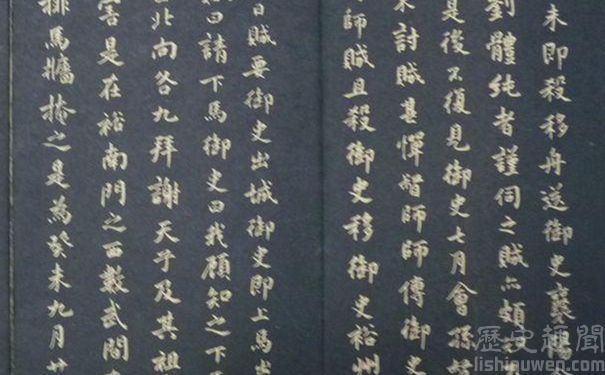 未即殺移舟送御史襄陽
劉體純者謹伺之賊亦頗
是後不復見御史七月會孫
討賊甚憚督師師傳御史
師賊且殺御史移御史裕州
日賊要御史出城御史即上馬
曰請下馬御史曰我願知之下馬
北向各九拜謝天子及其祖
害是在裕南門之西數武間
排馬牆掩之是為癸未九月廿
歷史趣聞
lishiquwen.com